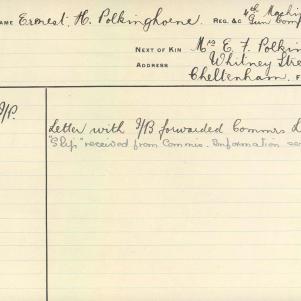 NAME Ernest H. Polkinghorne. REG. &C 4th Machi
Gun Comp
NEXT OF KIN Mrs E. F. Polkin
ADDRESS Whitney Stre
Cheltenham.
I/P.
Letter with I/B forwarded Commrs
"Slip" received from Commis. Information sen